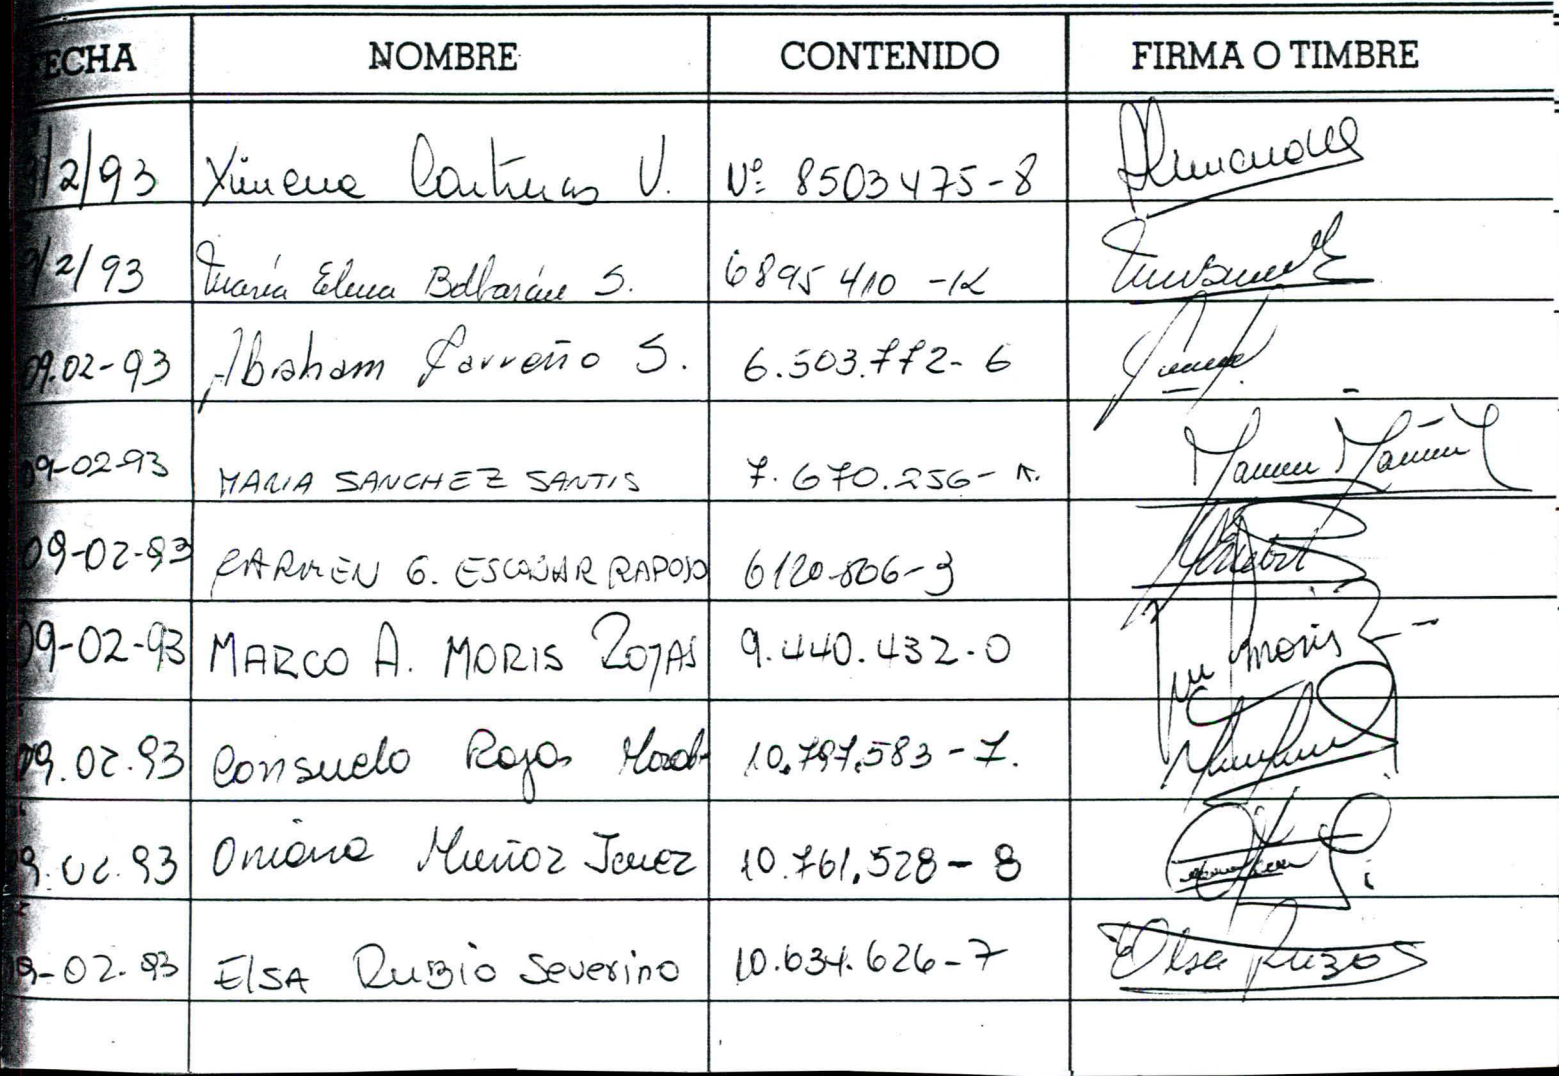 FECHA NOMBRE CONTENIDO FIRMA O TIMBRE
9/2/93 Ximena Contreras V. Nº 8503475-8
9/2/93 María Elena Balbarán S. 6895410-K
09.02-93 Abraham Carreño S. 6.503.772-6
09-02-93 MARIA SANCHEZ SANTIS 7.670.256-K.
09-02-93 CARMEN G. ESCOBAR RAPOSO 6120.806-3
09-02-93 MARCO A. MORIS ROJAS 9.440.432-0 Moris
09.02.93 Consuelo Rojas 10.797.583-7.
09.02.93 Oriana Muñoz Jerez 10.761.528-8
09-02-93 ELSA RUBIO Severino 10.634.626-7 Elsa Rubio S